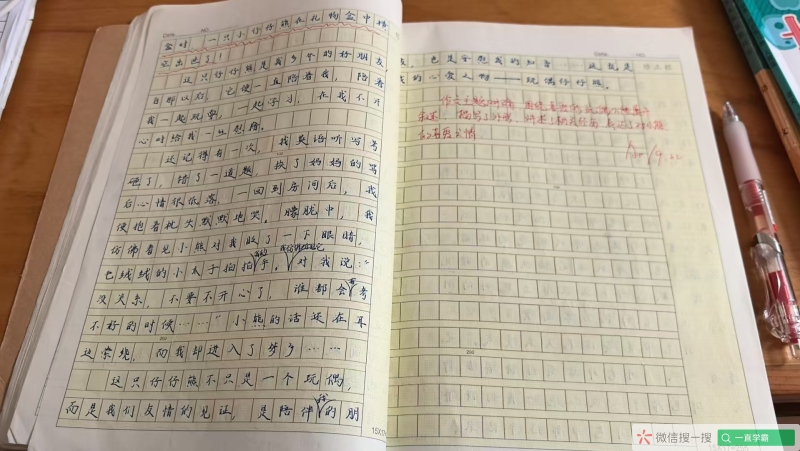 盒时，一只小仔仔熊在礼物盒中
它出世了！
这只仔仔熊是我多年的好朋友
自那以后，它便一直陪着我，陪着
我一起玩耍，一起学习，在我不开
心时给我一丝慰藉。
还记得有一次，我英语听写考
砸了，错了一道题，挨了妈妈的骂
后心情很低落，一回到房间后，我
便抱着枕头默默地哭。朦胧中，我
仿佛看见小熊对我眨了一下眼睛，
毛绒绒的小爪子拍拍手，对我说：“
没关系，不要不开心了，谁都会有考
不好的时候……”小熊的话还在耳
边萦绕，而我却进入了梦乡……
这只仔仔熊不只是一个玩偶，
而是我们友情的见证，是陪伴我的朋
友，也是安慰我的知音……这就是
我的心爱之物——玩偶仔仔熊。
作文主题明确
9.22
15X1
微信搜一搜
一直学霸